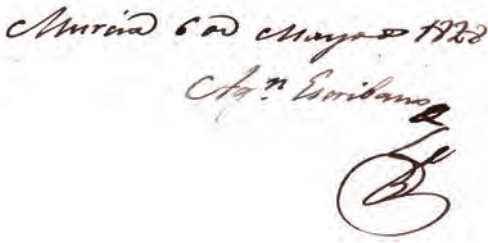 Murcia 6 de Mayo de 1828
Agⁿ Escribano